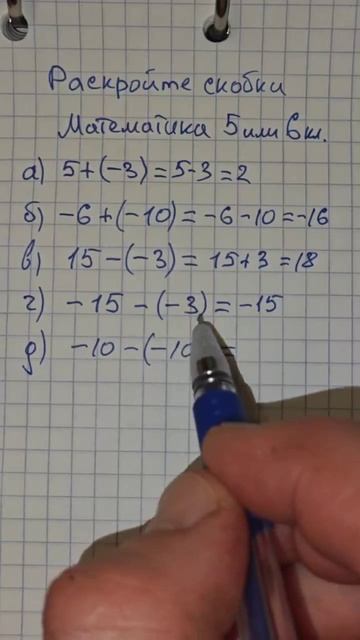 Раскройте скобки
Математика 5 или 6 кл.
а) 5+(-3)=5-3=2
б) -6+(-10)=-6-10=-16
в) 15-(-3)=15+3=18
г) -15-(-3)=-15
д) -10-(-10 =